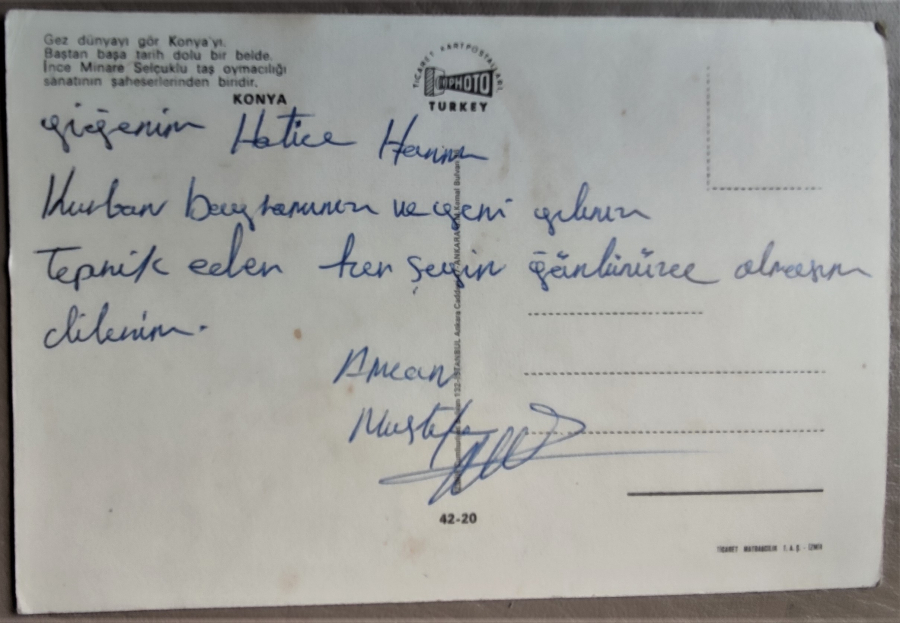 Gez dünyayı gör Konya'yı.
Baştan başa tarih dolu bir belde.
İnce Minare Selçuklu taş oymacılığı
sanatının şaheserlerinden biridir.
KONYA
TİCARET KARTPOSTALLARI
PHOTO
TURKEY
yiğenim Hatice Hanım
Kurban bayramının ve yeni yılının
Tepnik eder her şeyin gönlünüzce olmasını
dilerim.
Amcan
Mustafa
132-İSTANBUL Ankara Caddesi ANKARA Kemal Bulvarı
42-20
TİCARET MATBAACILIK T.A.Ş. - İZMİR